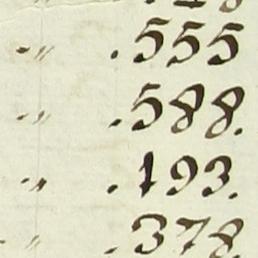 " .555
" .588.
" .193.
" .378.